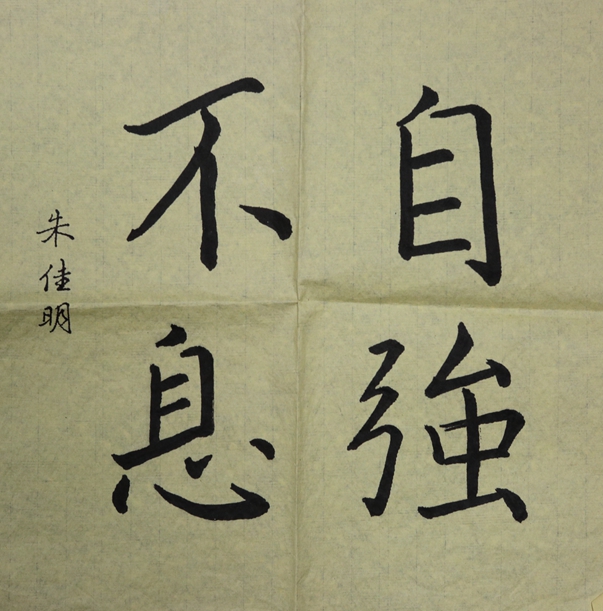 自強
不息
朱佳明